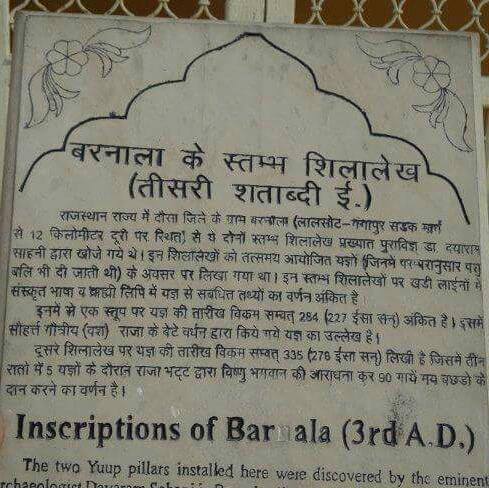 बरनाला के स्तम्भ शिलालेख
(तीसरी शताब्दी ई.)
राजस्थान राज्य में दौसा जिले के ग्राम बरनाला (लालसोट-गंगापुर सड़क मार्ग
से 12 किलोमीटर दूरी पर स्थित) से ये दोनों स्तम्भ शिलालेख प्रख्यात पुराविज्ञ डा. दयाराम
साहनी द्वारा खोजे गये थे। इन शिलालेखों को तत्समय आयोजित यज्ञों (जिनमें परम्परानुसार पशु
बलि भी दी जाती थी) के अवसर पर लिखा गया था। इन स्तम्भ शिलालेखों पर खडी लाईनों में
संस्कृत भाषा व ब्राह्मी लिपि में यज्ञ से सबंधित तथ्यों का वर्णन अंकित है।
इनमें से एक स्तूप पर यज्ञ की तारीख विक्रम सम्वत् 284 (227 ईसा सन्) अंकित है। इसमें
सौहर्त्त गौत्रीय (वंश) राजा के बेटे वर्धन द्वारा किये गये यज्ञ का उल्लेख है।
दूसरे शिलालेख पर यज्ञ की तारीख विक्रम सम्वत् 335 (278 ईसा सन्) लिखी है जिसमें तीन
रातो में 5 यज्ञों के दौरान राजा भट्ट द्वारा विष्णु भगवान की आराधना कर 90 गायें मय बछडो के
दान करने का वर्णन है।
Inscriptions of Barnala (3rd A.D.)
The two Yuup pillars installed here were discovered by the eminent